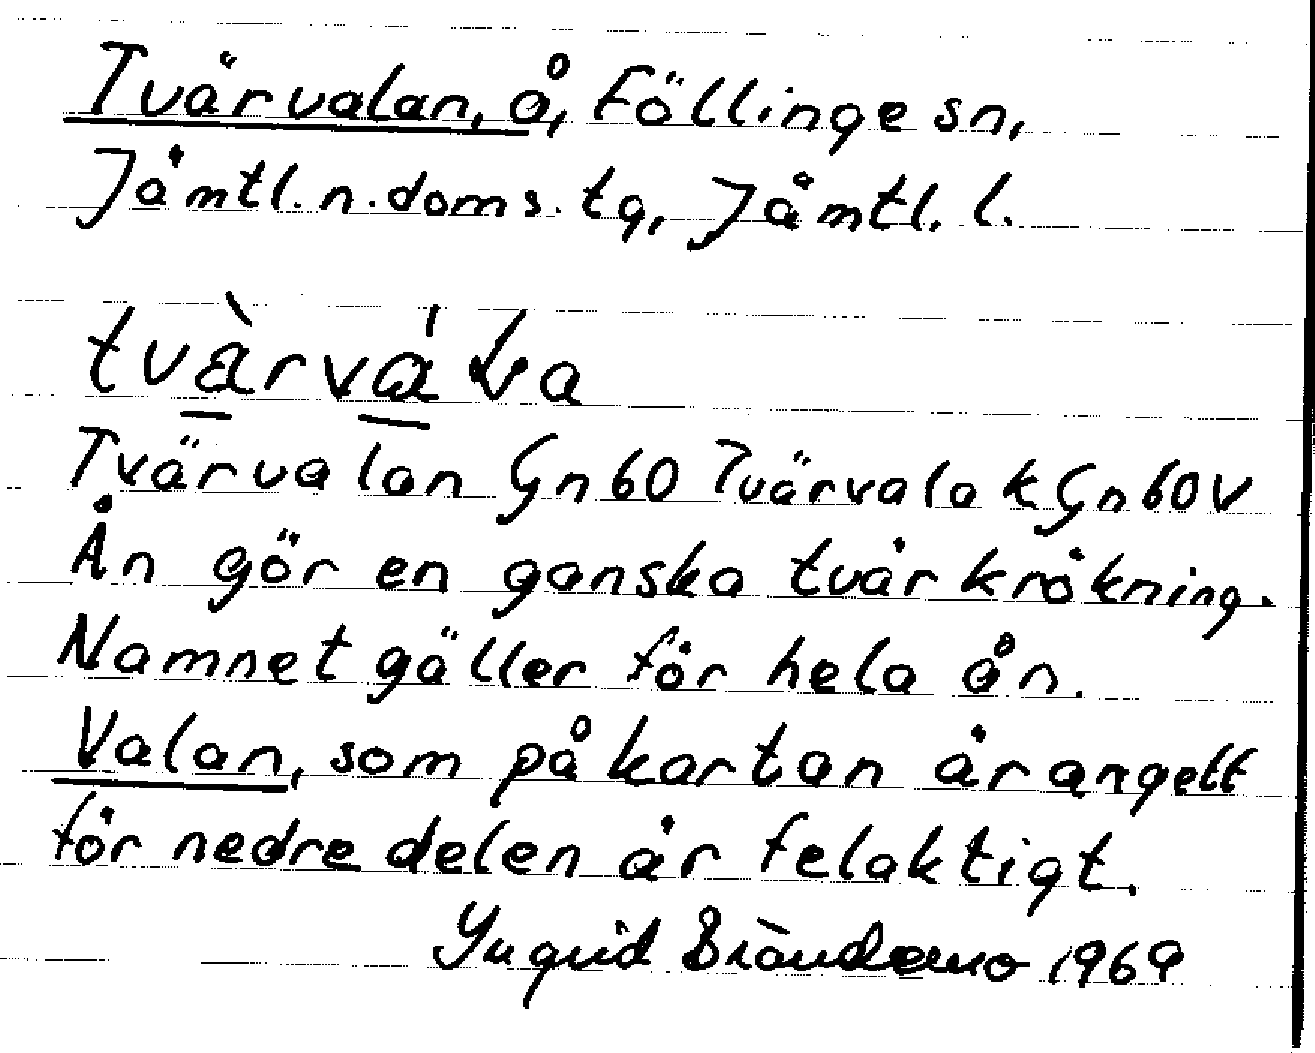 Tvärvalan, å, Föllinge sn,
Jämtl. n. doms. tg, Jämtl. l.
Tvärvalan Gn 60 Tvärvalak Gn 60 V
Ån gör en ganska tvär krökning.
Namnet gäller för hela ån.
Valan, som på kartan är angett
för nedre delen är felaktigt.
Yngvid Brändemo 1969